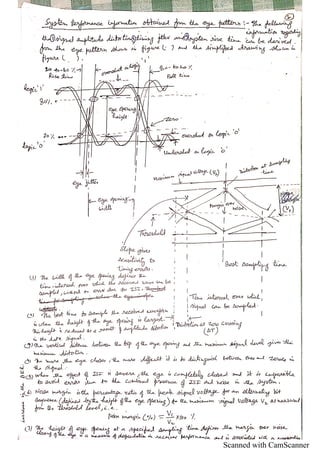 System Performance information obtained from the eye pattern :- The following
information regarding
the signal amplitude distortion, timing jitter and system rise time can be derived
from the eye pattern shown in figure ( ) and the simplified drawing shown in
figure ( ).
20 to 80 %
Rise time
overshoot on logic '1'
80 to 20 %
Fall time
logic '1'
80%
eye opening
height
zero
20 %
logic '0'
overshoot on logic '0'
Undershoot on logic '0'
eye jitter
eye opening
width
Maximum signal voltage (V2)
Distortion at sampling
time
Margin over
noise
(V1)
Threshold
slope gives
sensitivity to
timing errors
Best sampling time
Time interval over which
signal can be sampled
Distortion at zero crossing
(ΔT)
(1) The width of the eye opening defines the
time interval over which the received signal can be
sampled, without error due to ISI.
(2) The best time to sample the received waveform
is when the height of the eye opening is largest.
This height is reduced as a result of amplitude distortion
in the data signal.
(3) The vertical distance between the top of the eye opening and the maximum signal level gives the
maximum distortion
(4) The more the eye closes, the more difficult it is to distinguish between ones and zeros in
the signal.
(5) When the effect of ISI is severe, the eye is completely closed and it is impossible
to avoid errors due to the combined presence of ISI and noise in the system.
(6) Noise margin is the percentage ratio of the peak signal voltage for an alternating bit
sequence (defined by the height of the eye opening) to the maximum signal voltage V2 as measured
from the threshold level, i.e.,
Noise margin (%) = V1/V2 × 100 %.
(7) The height of the eye opening at a specified sampling time defines the margin over noise
closing of the eye is a measure of degradation in receiver performance and is associated with
Scanned with CamScanner